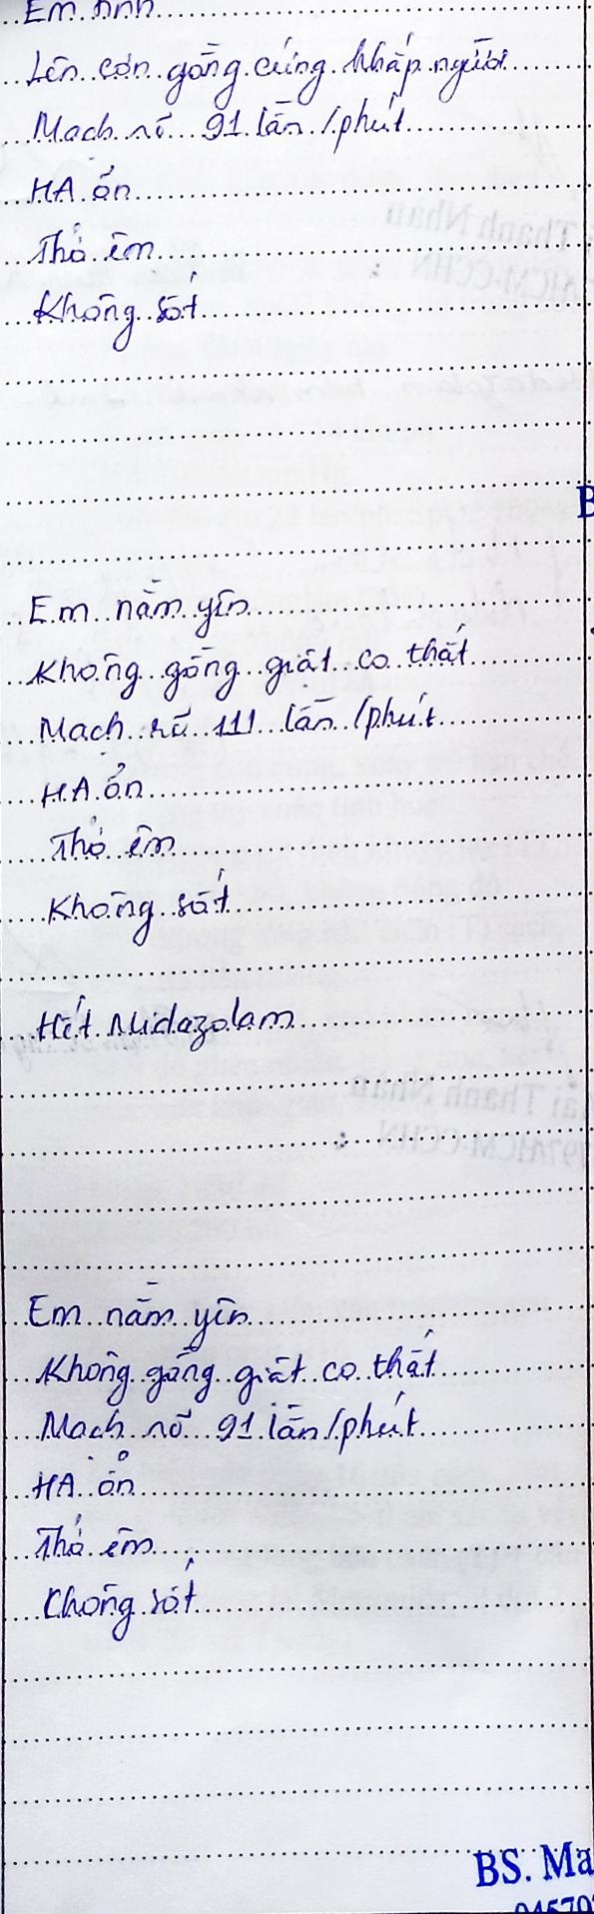 Em tỉnh
Lên cơn gồng cứng khắp người
Mạch rõ 91 lần/phút
HA ổn
Thở êm
Không sốt
Em nằm yên
Không gồng giật co thắt
Mạch rõ 111 lần/phút
HA ổn
Thở êm
Không sốt
Hết Midazolam
Em nằm yên
Không gồng giật co thắt
Mạch rõ 91 lần/phút
HA ổn
Thở êm
Không sốt
BS. Ma